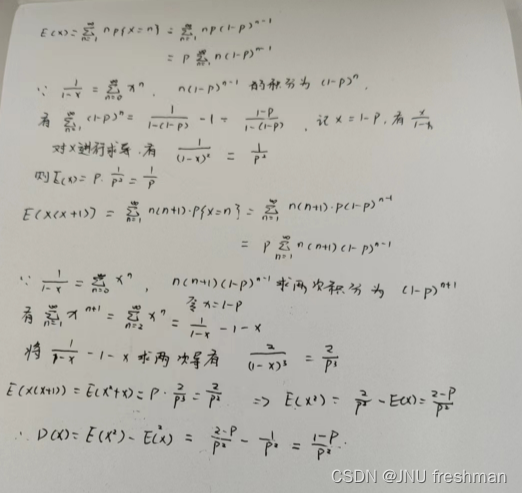 E(x)=∑_{n=1}^{∞} n p{x=n} = ∑_{n=1}^{∞} np(1-p)^{n-1}
= p ∑_{n=1}^{∞} n(1-p)^{n-1}
∵ 1/(1-x) = ∑_{n=0}^{∞} x^n , n(1-p)^{n-1} 的积分为 (1-p)^n,
有 ∑_{n=1}^{∞} (1-p)^n = 1/(1-(1-p)) - 1 = (1-p)/(1-(1-p)) , 记 x=1-p, 有 x/(1-x)
对x进行求导,有 1/(1-x)² = 1/p²
则E(x)= p· 1/p² = 1/p
E(x(x+1)) = ∑_{n=1}^{∞} n(n+1)·p{x=n} = ∑_{n=1}^{∞} n(n+1)·p(1-p)^{n-1}
= p ∑_{n=1}^{∞} n(n+1)(1-p)^{n-1}
∵ 1/(1-x) = ∑_{n=0}^{∞} x^n , n(n+1)(1-p)^{n-1} 求两次积分为 (1-p)^{n+1}
令x=1-p
有 ∑_{n=1}^{∞} x^{n+1} = ∑_{n=2}^{∞} x^n = 1/(1-x) -1-x
将 1/(1-x) -1-x 求两次导有 2/(1-x)³ = 2/p³
E(x(x+1)) = E(x²+x) = p· 2/p³ = 2/p² ⇒ E(x²) = 2/p² - E(x) = (2-p)/p²
∴ D(x)=E(x²)-E²(x) = (2-p)/p² - 1/p² = (1-p)/p² .
CSDN @JNU freshman